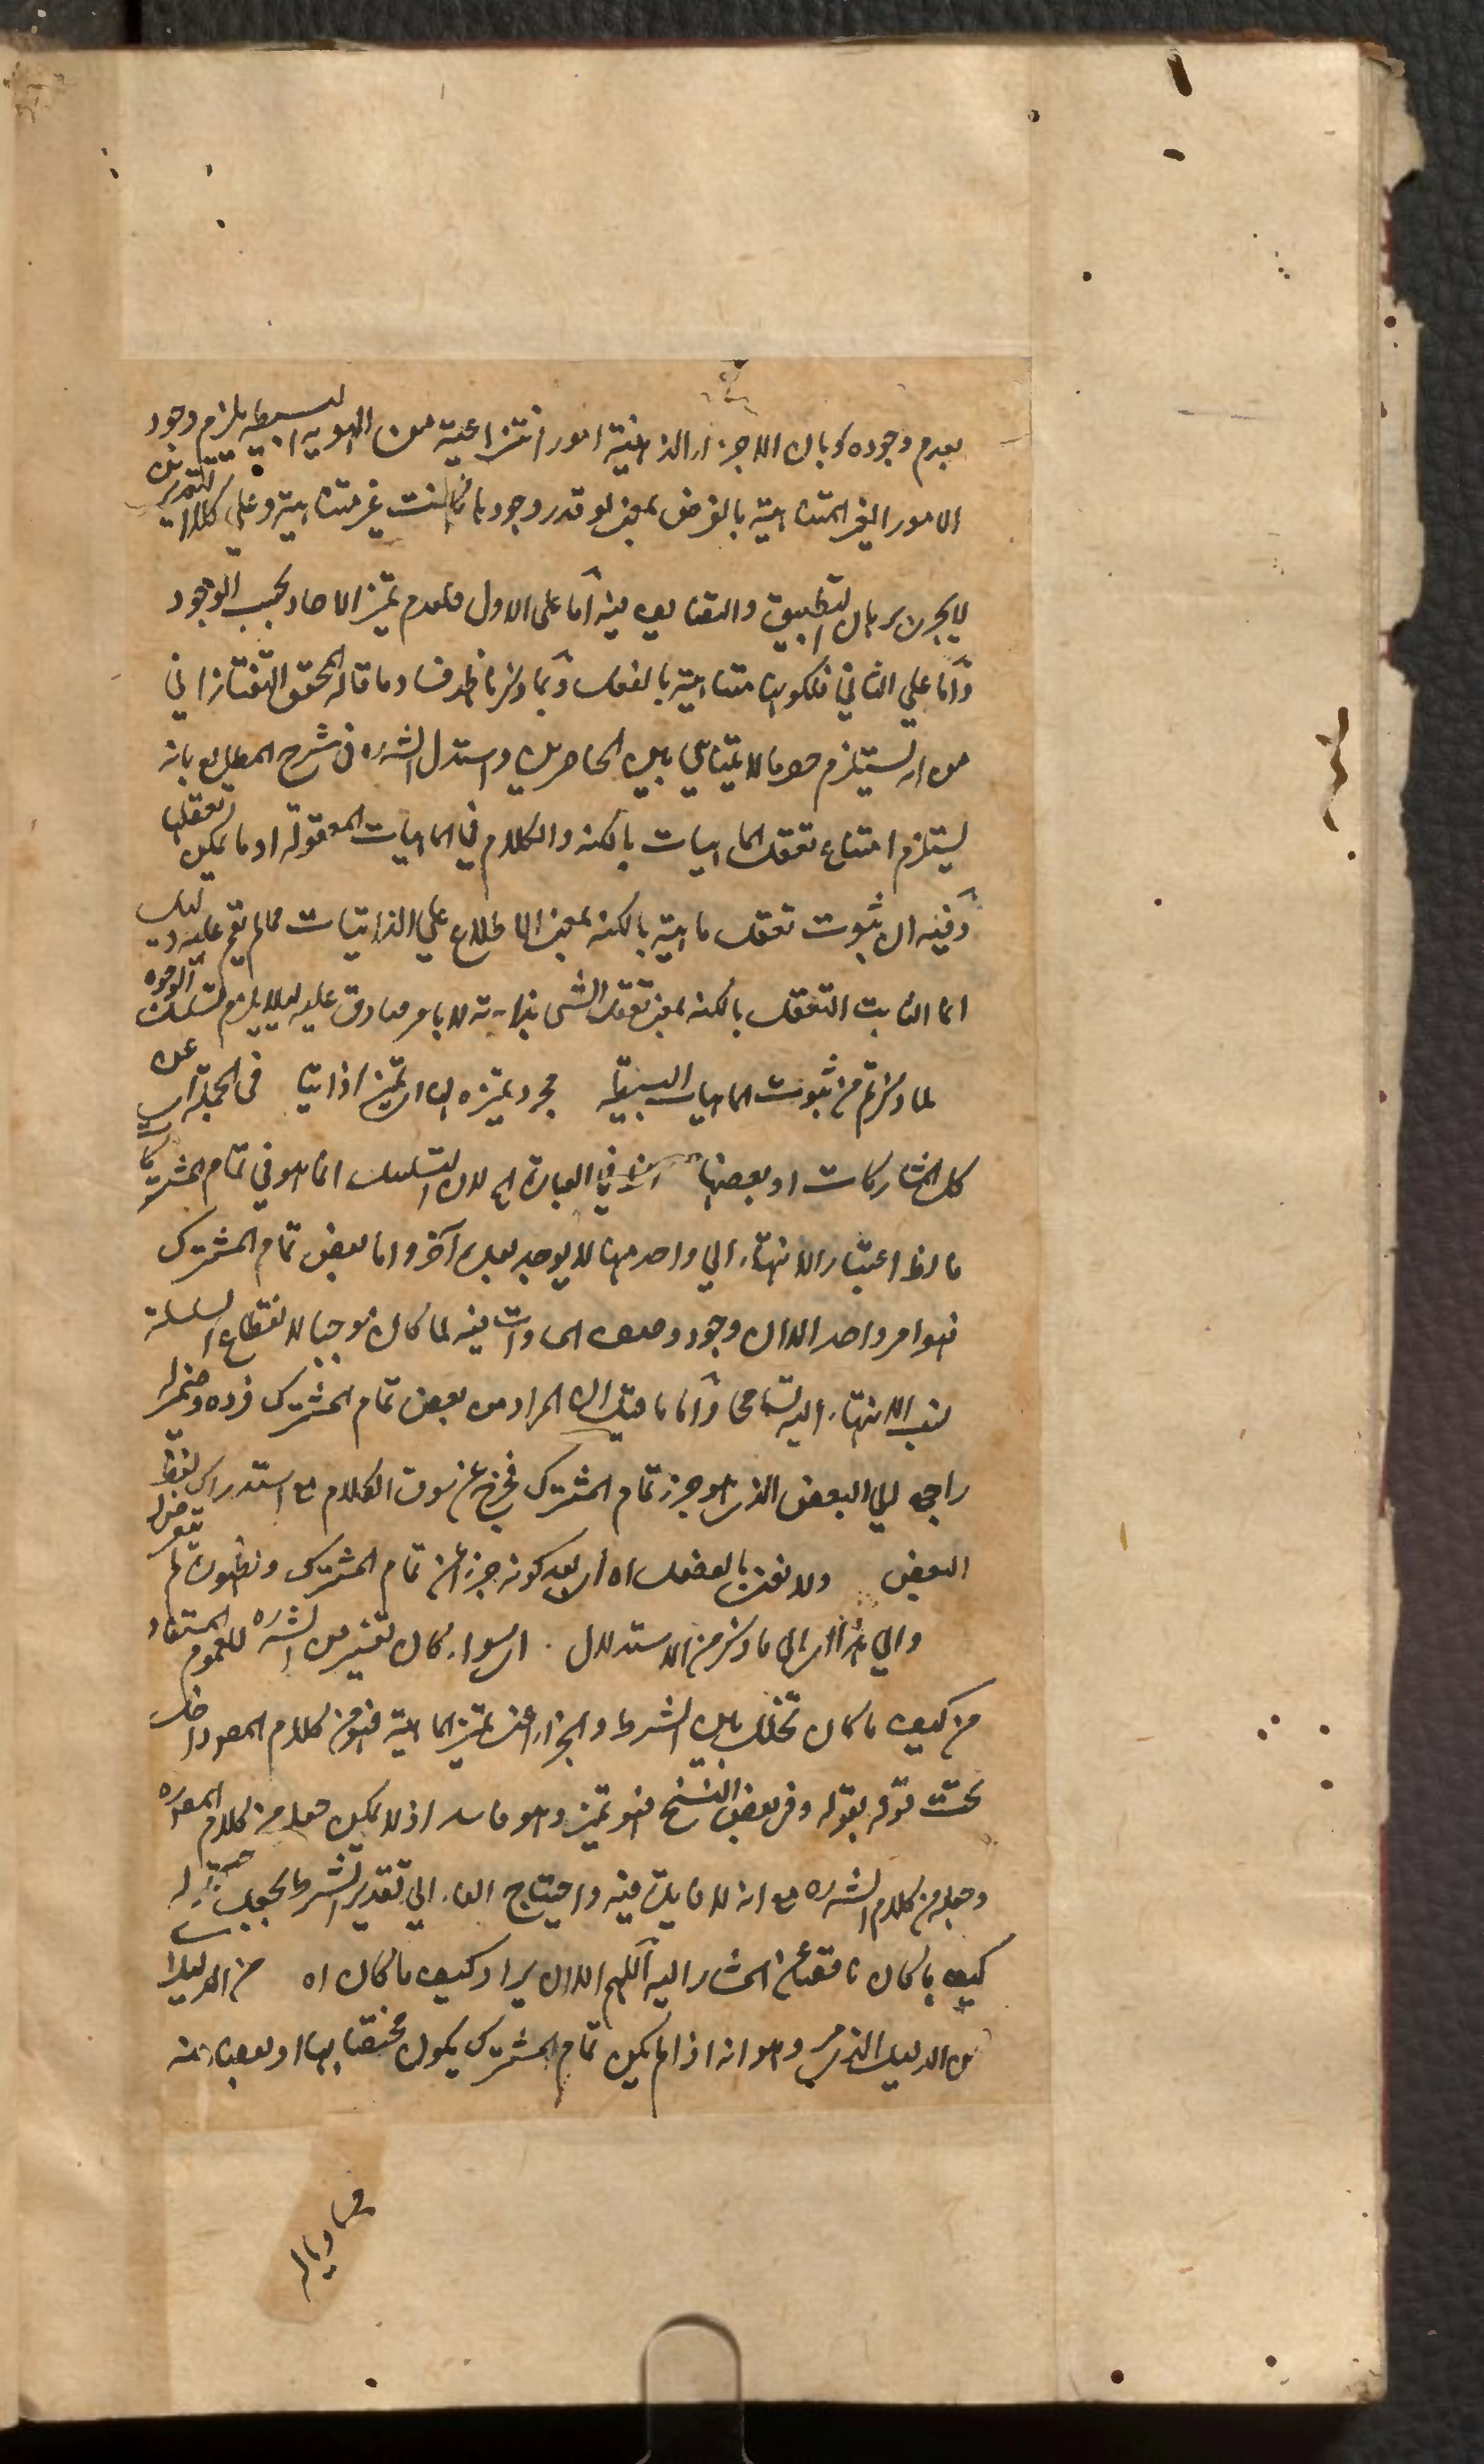 بعدم وجوده وبان الاجزاء الذهنية امور انتزاعية من الهوية البسيطة يلزم وجود
الامور الغير المتناهية بالفرض بمعنى لو قدر وجودها كانت غير متناهية وعلى كلا التقديرين
لا يجرى برهان التطبيق والتضايف فيه اما على الاول فلعدم تميز الاحاد بحسب الوجود
واما على الثاني فلكونها متناهية بالفعل وبما ذكرنا ظهر فساد ما قاله المحقق التفتازاني
من انه يستلزم حصر ما لا يتناهى بين الحاصرين واستدل الشره في شرح المطالع بانه
يستلزم امتناع تعقل الماهيات بالكنه والكلام في الماهيات المعقولة او ما يمكن تعقلها
وفيه ان ثبوت تعقل ماهية بالكنه بمعنى الاطلاع على الذاتيات مما لم يقم عليه دليل
انما الثابت التعقل بالكنه بمعنى تعقل الشى بذاته لا بامر صادق عليه لئلا يلزم تسلسل الوجوه
لما ذكرتم من ثبوت الماهيات البسيطة مجرد تميزه اى تميزا ذاتيا في الجملة اى عن
كل المشاركات او بعضها في العبارة اه لان التسلسل انما هو في تمام المشتركات
فاللازم اعتبار الانتهاء الى واحد منها لا يوجد بعده آخر واما بعض تمام المشترك
فهو امر واحد الا ان وجود وصف المساوات فيه لما كان موجبا لانقطاع السلسلة
نسب الانتهاء اليه تسامحا واما ما قيل ان المراد من بعض تمام المشترك فرده وضمير له
راجع الى البعض الذى هو جزء تمام المشترك فخرج عن سوق الكلام مع استدراك لفظ
البعض ولا نعنى بالفصل اه اى بعد كونه جزءا من تمام المشترك ولظهوره لم يتعرض له
والى هذا اى الى ما ذكر من الاستدلال اى سواء كان تفسير من الشره للعموم المستفاد
من كيف ما كان تخلل بين الشرط والجزاء اعنى تميز الماهية فهو من كلام المصه داخل
تحت قوله بقوله وفى بعض النسخ فهو تميز وهو فاسد اذ لا يمكن جعله من كلام المصه
وجعله من كلام الشره مع انه لا فايدة فيه واحتياج الفاء الى تقدير الشرط يجعل
كيف ما كان ناقصا عن المشار اليه اللهم الا ان يراد كيف ما كان اه من الدليل
من الدليل الذى مر وهو انه اذا لم يكن تمام المشترك يكون مختصا بها او بعضا منه